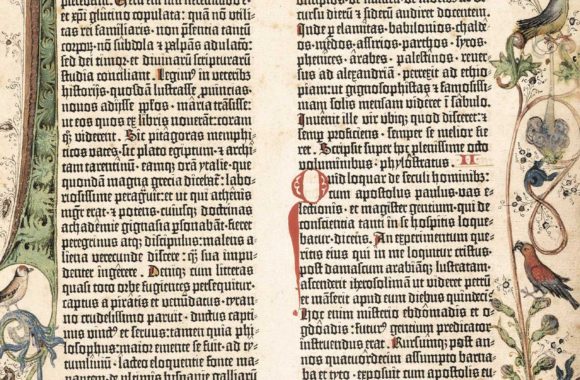 et xp̄i glutino copulata: quā nō utili-
tas rei familiaris, nō p̄sentia tantū
corporū, nō subdola et palpās adulatō:
sed dei timor, et divinarū scripturarū
studia conciliant. Legim⁹ in veterib⁹
historijs, quosdā lustrasse, p̄vincias:
novos adijsse pp̄los, maria trāsisse:
ut eos quos ex libris noverāt: coram
qꝫ viderent. Sic pitagoras memphi-
ticos vates, sic plato egiptum, et archi-
tam tarentinum, eamqꝫ orā ytalie, que
quondam magna grecia diceba⁊: labo-
riosissime peragravit: et ut qui athenis
mgr̄ erat, et potens, cuiusqꝫ doctrinas
achademie gignasia p̄sonabāt: fieret
peregrinus atqꝫ discipulus: malens a-
liena verecunde discere: qꝫ sua impu-
denter ingerere. Deniqꝫ cum litteras
quasi toto orbe fugientes persequitur:
captus a piratis et venūdatus, tyran-
no crudelissimo paruit, ductus capti-
vus vinct⁹ et servus: tamen quia phi-
losophus: maior emente se fuit. ad ty-
tumlivium, lacteo eloquentie fonte ma-
nantem, de ultimis hispanie galliarū
cursu siderū et siderū audiret docentem.
Inde p elamitas, babilonios, chalde-
os, medos, assirios, parthos, syros,
phenices, arabes, palestinos, rever-
sus ad alexandriā: perrexit ad ethio-
piam: ut gignosophistas et famosissi-
mam solis mensam videret ī sabulo.
Invenit ille vir ubiqꝫ quod disceret: et
semp proficiens, semper se melior fie-
ret. Scripsit super hoc plenissime octo
voluminibus: phylostratus. II
Quid loquar de seculi hominib⁹:
cum apostolus paulus, vas e-
lectionis, et magister gentium, qui de
conscientia tanti in se hospitis loque-
batur, dicens. An experimentum que-
ritis eius qui in me loquitur cristus.
Post damascum arabiāqꝫ lustratam:
ascendit iherosolimā ut videret petrū
et māsit apud eum diebus quindeci.
Hoc enim misterio ebdomadis et o-
gdoadis: futur⁹ gentium predicator
instruendus erat. Rursumqꝫ post an-
nos quatuordecim assumpto barna-
ba et tyto, exposuit cum apostolis eu-